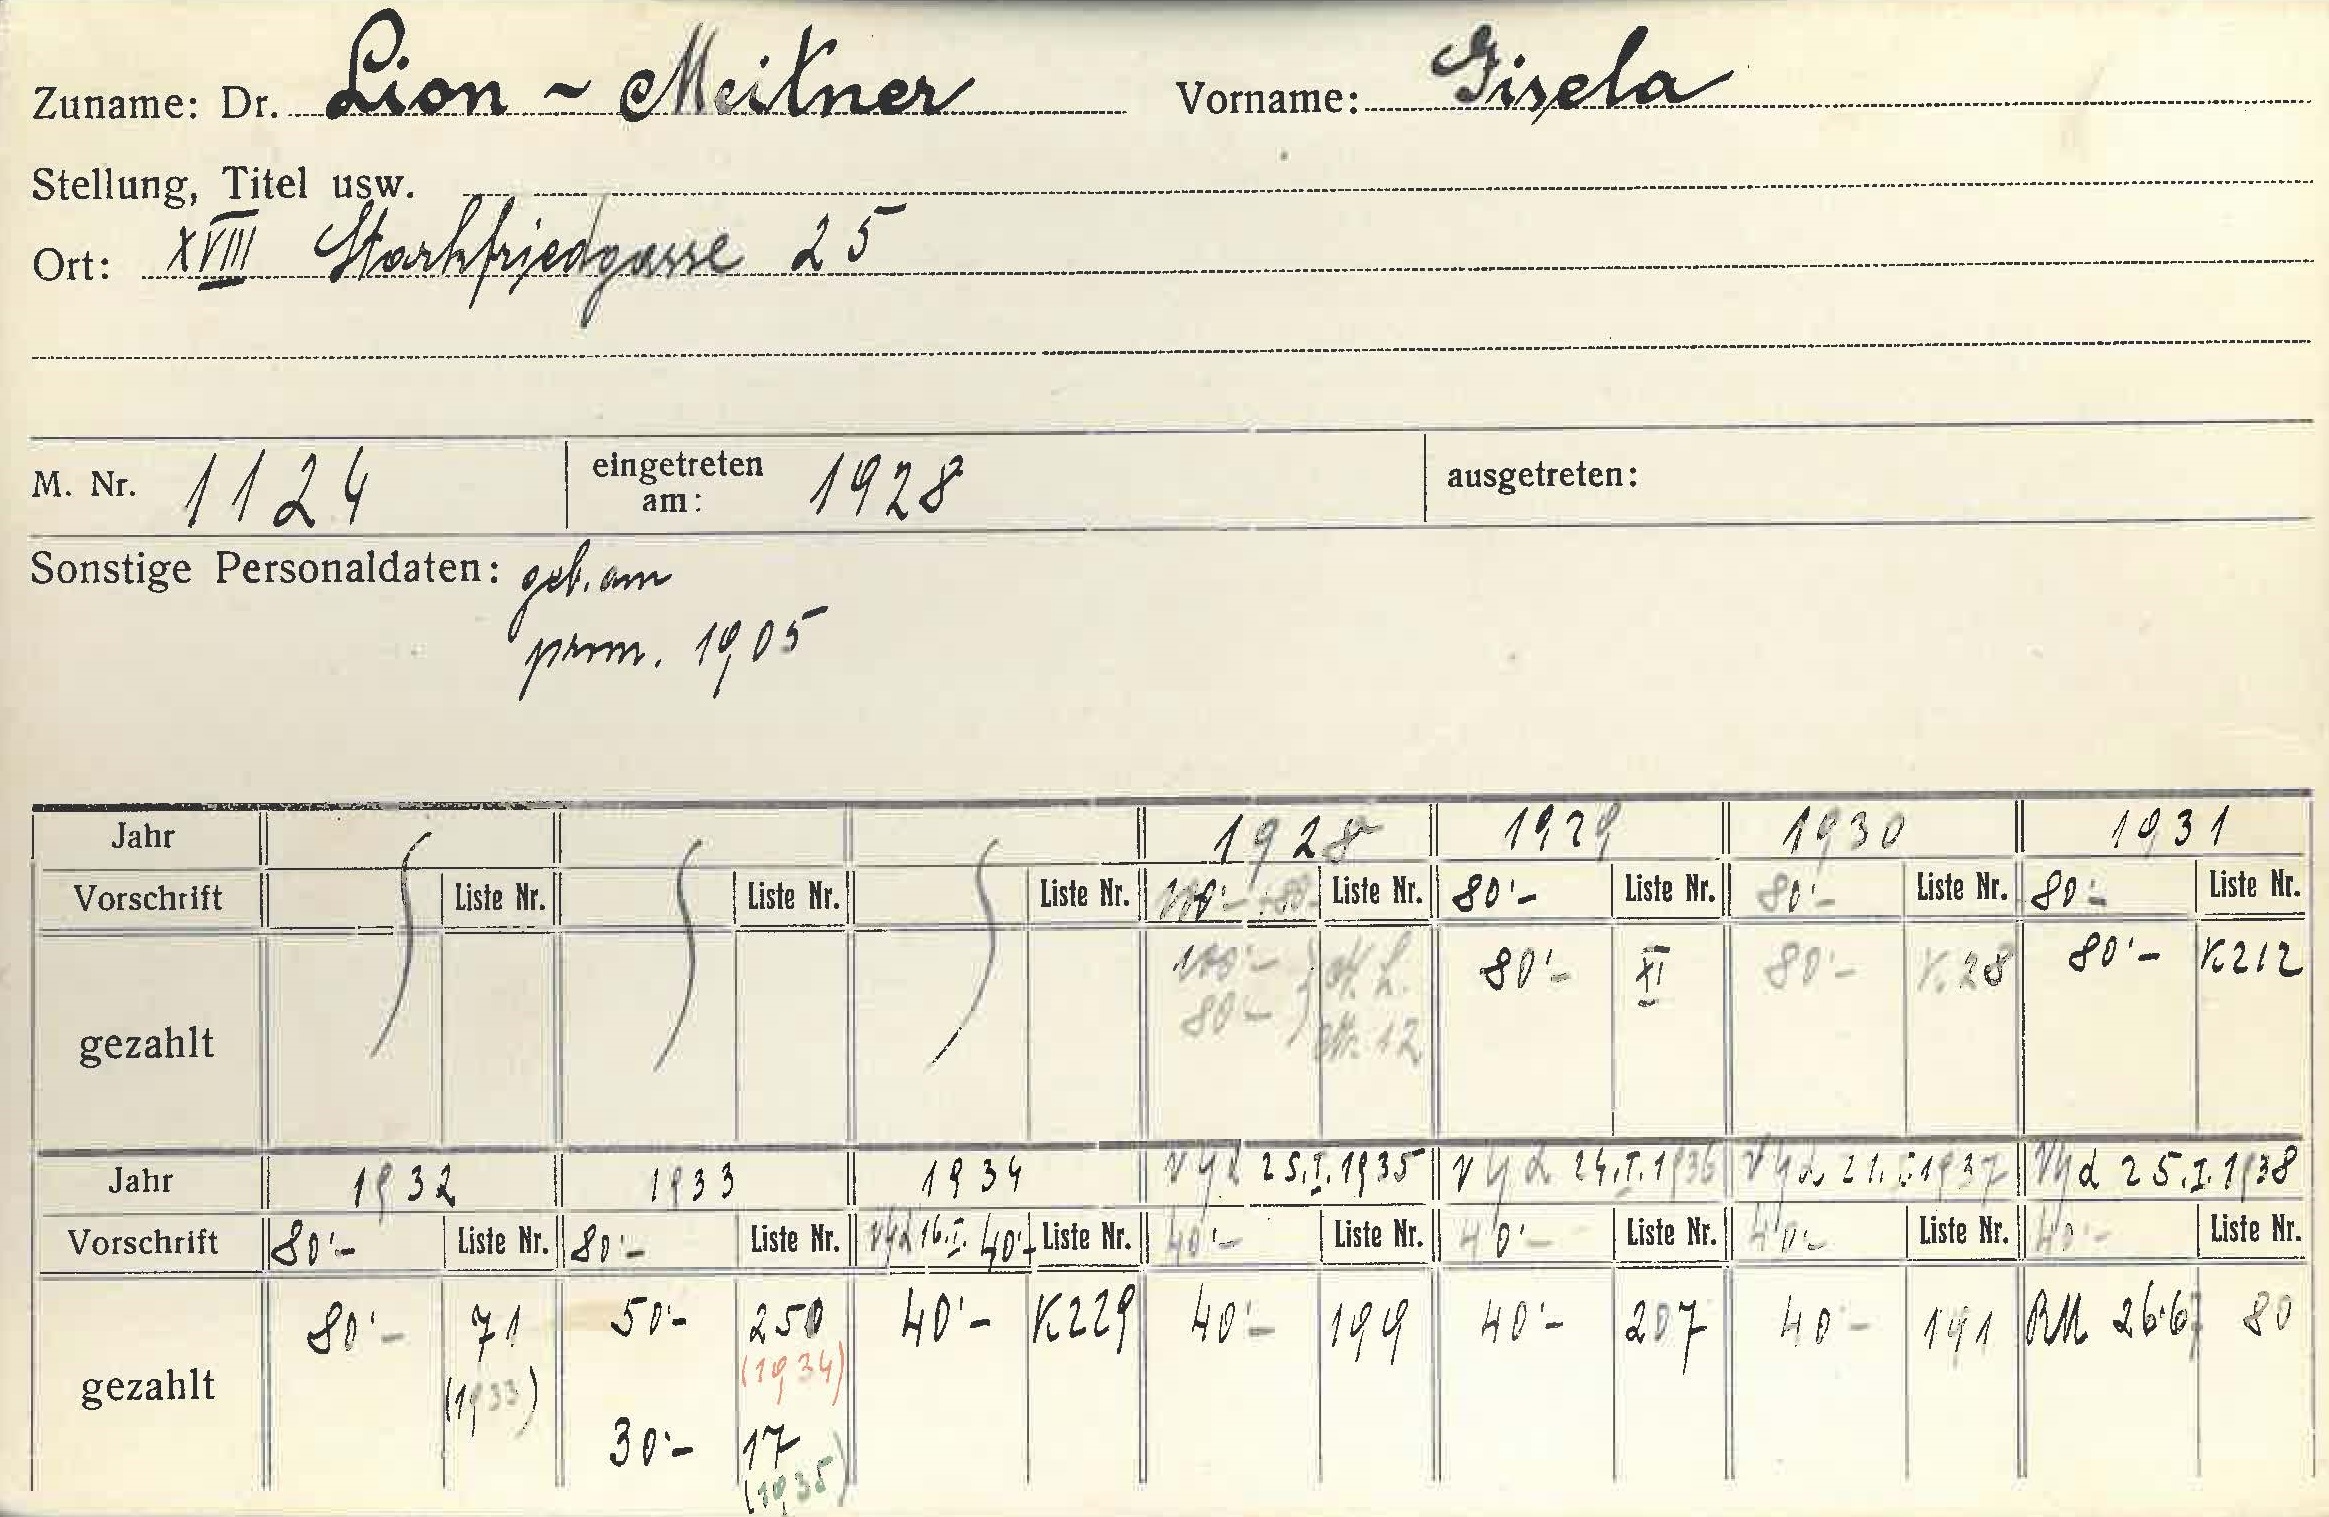 Zuname: Dr. Lion - Meitner Vorname: Gisela
Stellung, Titel usw.
Ort: XVIII Starkfriedgasse 25
M. Nr. 1124 eingetreten am: 1928 ausgetreten:
Sonstige Personaldaten: geb. am
prom. 1905
Jahr 1928 1929 1930 1931
Vorschrift Liste Nr. Liste Nr. Liste Nr. Liste Nr. 80'- Liste Nr. 80'- Liste Nr. 80'- Liste Nr.
gezahlt 100'- 80'- XI 80'- K. 28 80'- K212
80'- 12
Jahr 1932 1933 1934 25.I.1935 24.I.1936 21.I.1937 25.I.1938
Vorschrift 80'- Liste Nr. 80'- Liste Nr. 16.I. 40'- Liste Nr. 40'- Liste Nr. 40'- Liste Nr. 40'- Liste Nr. 40'- Liste Nr.
gezahlt 80'- 71 50'- 250 40'- K229 40'- 199 40'- 207 40'- 191 RM 26.67 80
(1933) (1934)
30'- 17
(1935)